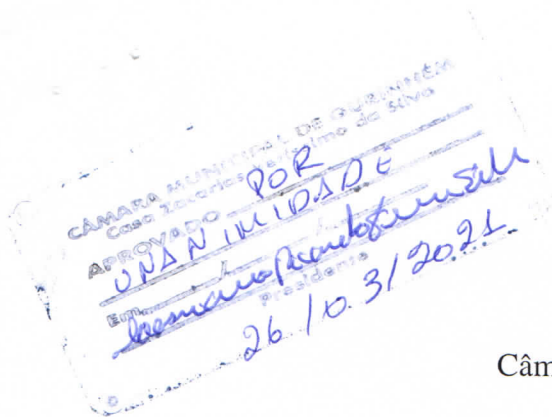 CÂMARA MUNICIPAL DE GURINHÉM
Casa Zacarias Veríssimo da Silva
APROVADO POR
UNANIMIDADE
Em / /
Presidente
26/03/2021
Câm